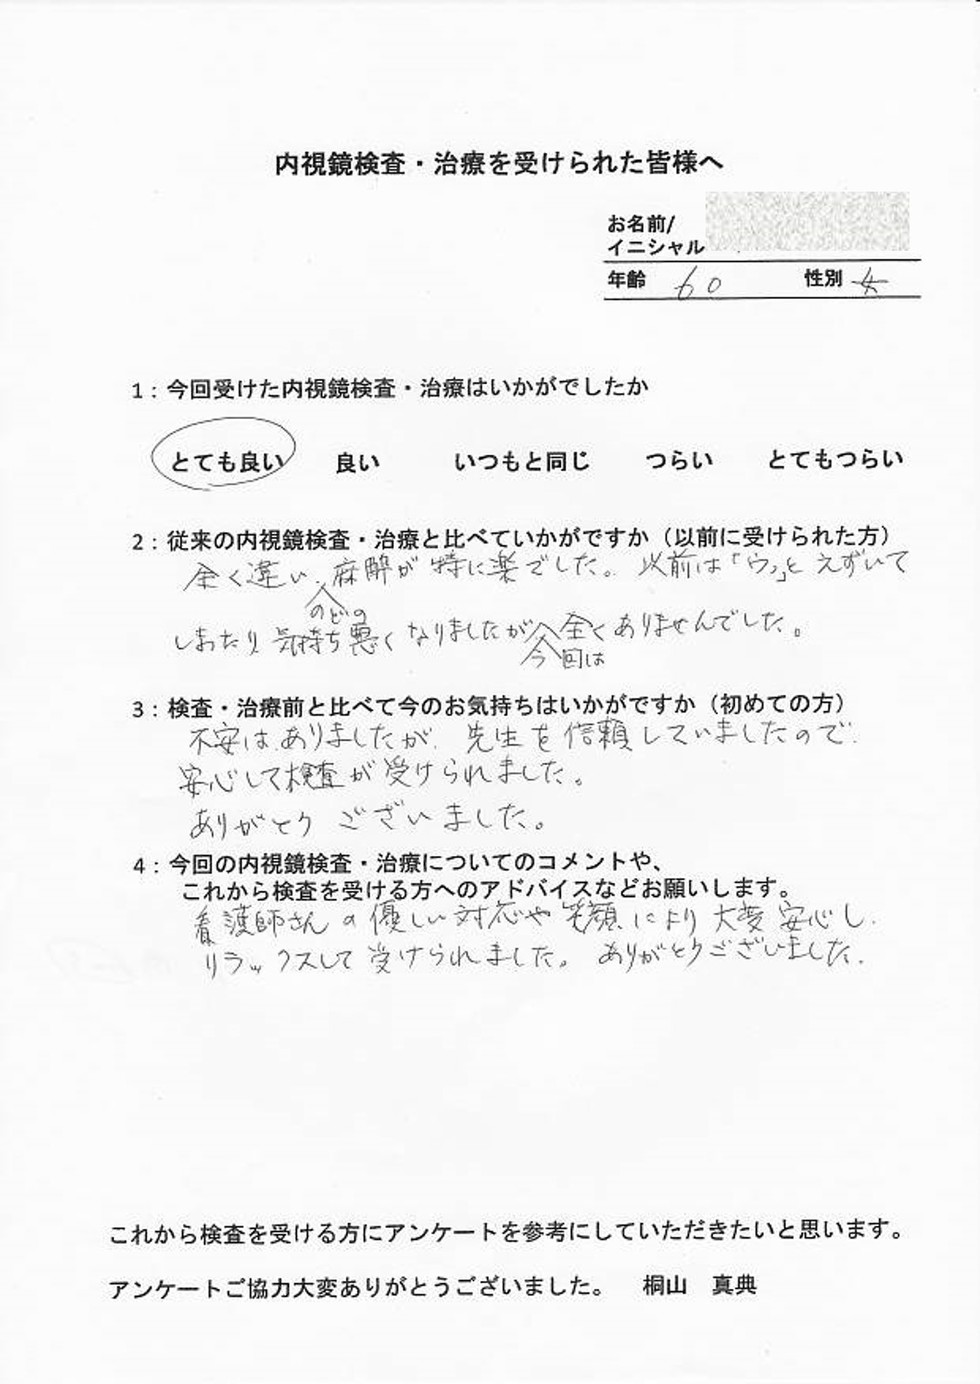 内視鏡検査・治療を受けられた皆様へ
お名前/
イニシャル
年齢 60 性別 女
1：今回受けた内視鏡検査・治療はいかがでしたか
とても良い 良い いつもと同じ つらい とてもつらい
2：従来の内視鏡検査・治療と比べていかがですか（以前に受けられた方）
全く違い、のどの麻酔が特に楽でした。以前は「ウッ」とえずいて
しまたり気持ち悪くなりましたが今回は全くありませんでした。
3：検査・治療前と比べて今のお気持ちはいかがですか（初めての方）
不安はありましたが、先生を信頼していましたので、
安心して検査が受けられました。
ありがとうございました。
4：今回の内視鏡検査・治療についてのコメントや、
これから検査を受ける方へのアドバイスなどお願いします。
看護師さんの優しい対応や笑顔により大変安心し、
リラックスして受けられました。ありがとうございました。
これから検査を受ける方にアンケートを参考にしていただきたいと思います。
アンケートご協力大変ありがとうございました。 桐山 真典